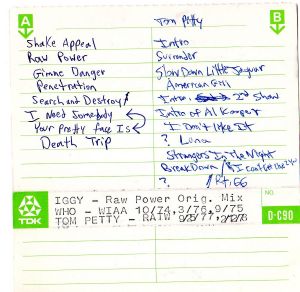 A
Shake Appeal
Raw Power
Gimme Danger
Penetration
Search and Destroy
I Need Somebody
Your Pretty Face Is
Death Trip
B
Tom Petty
Intro
Surrender
Slow Down Little Jaguar
American Girl
Intro 2nd Show
Intro of Al Kooper
I Don't Like It
? Luna
Strangers In The Night
Breakdown / I Can't
?
IGGY - Raw Power Orig. Mix
WHO - WIAA 10/74,3/76,9/75
TOM PETTY - RAIW
TDK
NO.
D-C90